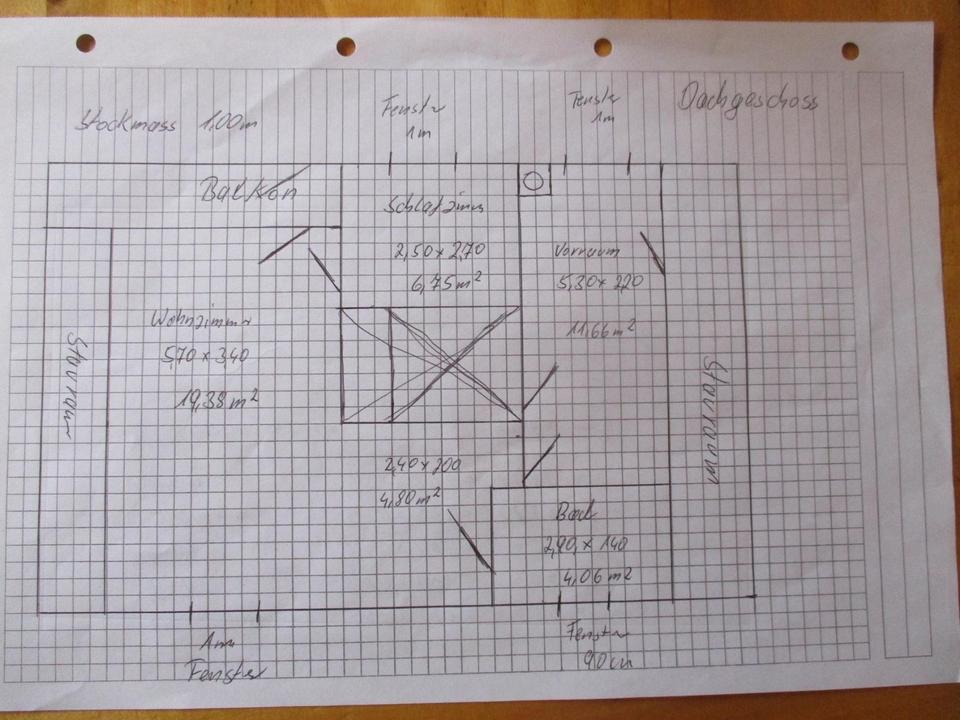 Stockmass 1,00m
Fenster
1m
Fenster
1m
Dachgeschoss
Balkon
Schlafzimmer
2,50 x 2,70
6,75 m²
Vorraum
5,30 x 220
11,66 m²
Wohnzimmer
5,70 x 3,40
19,38 m²
Stauraum
Stauraum
2,40 x 200
4,80 m²
Bad
2,90 x 140
4,06 m²
1m
Fenster
Fenster
90cm